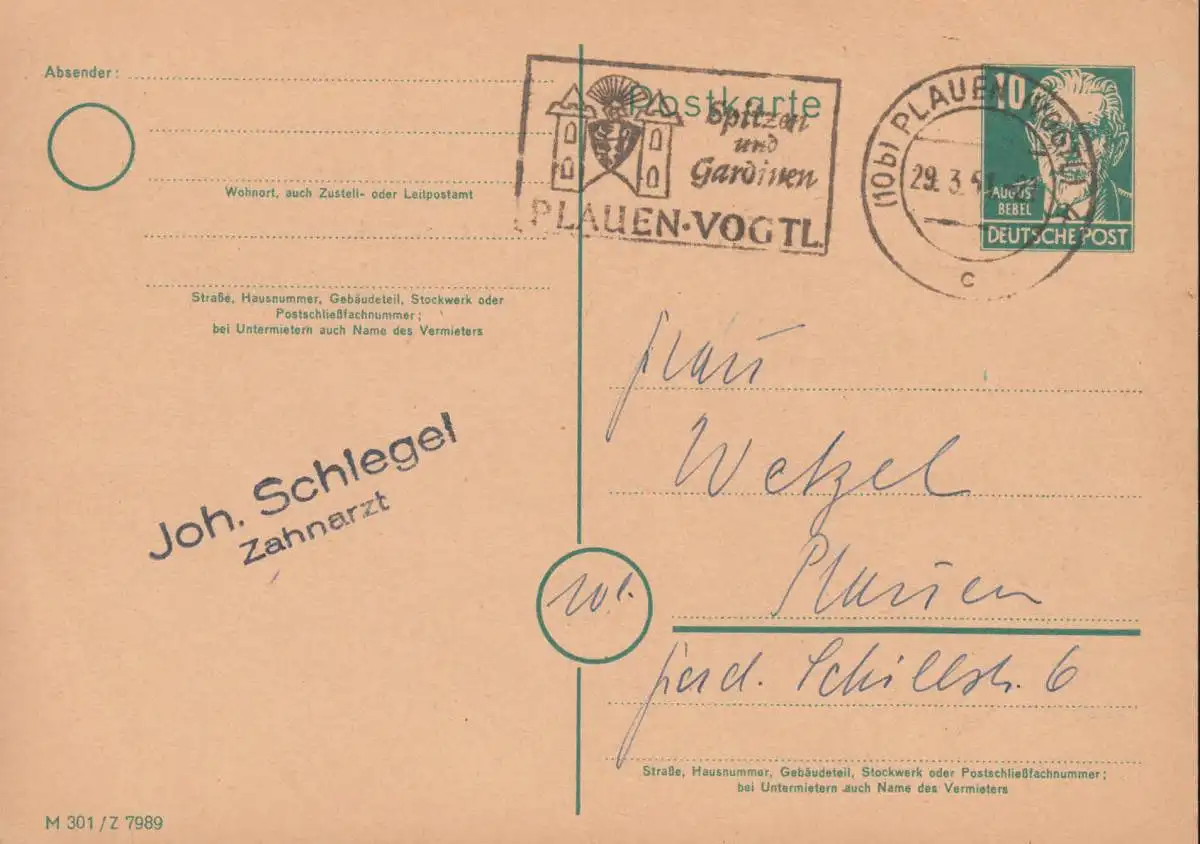 Absender:
Wohnort, auch Zustell- oder Leitpostamt
Straße, Hausnummer, Gebäudeteil, Stockwerk oder
Postschließfachnummer;
bei Untermietern auch Name des Vermieters
Joh. Schlegel
Zahnarzt
M 301/Z 7989
Postkarte
Spitzen
und
Gardinen
PLAUEN·VOGTL.
(10b) PLAUEN (VOGTL)
29. 3. 51
c
10
AUGUST
BEBEL
DEUTSCHE POST
Frau
Wetzel
Plauen
Ferd. Schillstr. 6
Straße, Hausnummer, Gebäudeteil, Stockwerk oder Postschließfachnummer;
bei Untermietern auch Name des Vermieters